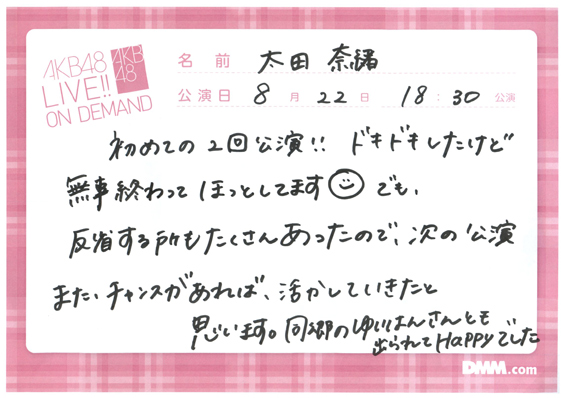 AKB48
LIVE!!
ON DEMAND
AKB
48
名前 太田 奈緒
公演日 8月22日 18:30 公演
初めての2回公演!! ドキドキしたけど
無事終わってほっとしてます☺でも、
反省する所もたくさんあったので、次の公演
また、チャンスがあれば、活かしていきたと
思います。同郷のゆいはんさんとも
出られてHappyでした
DMM.com